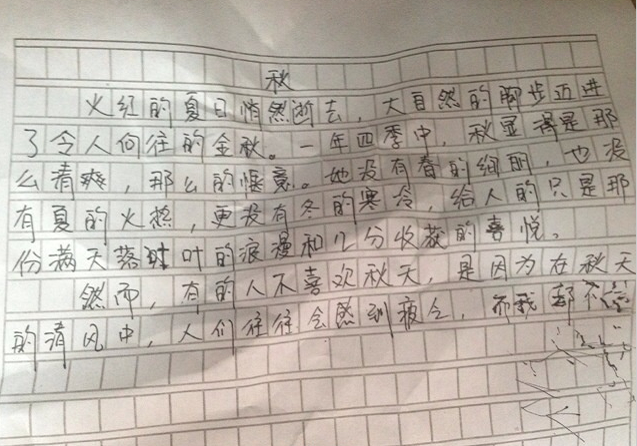 秋
火红的夏日悄然逝去，大自然的脚步迈进
了令人向往的金秋。一年四季中，秋显得是那
么清爽，那么的惬意。她没有春的绚丽，也没
有夏的火热，更没有冬的寒冷，给人的只是那
份满天落叶的浪漫和几分收获的喜悦。
然而，有的人不喜欢秋天，是因为在秋天
的清风中，人们往往会感到疲乏，而我却不